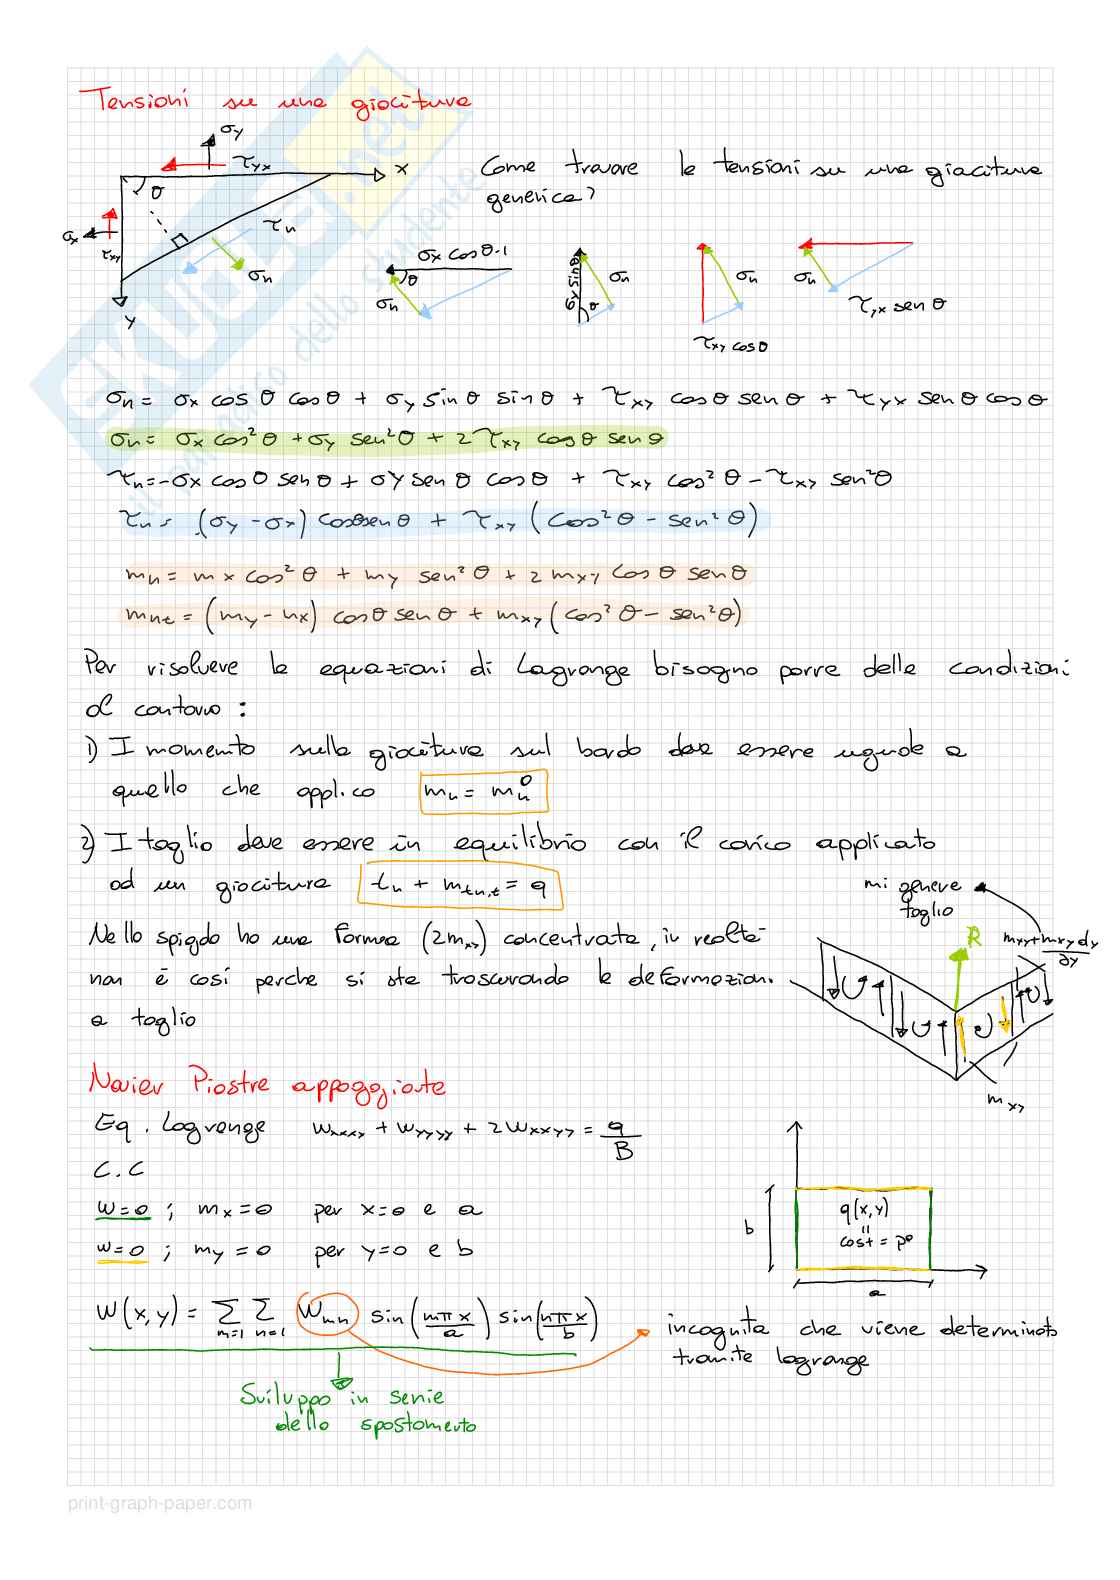 Tensioni su una giacitura
σy
τyx
x
θ
σx
τxy
τn
σn
y
Come trovare le tensioni su una giacitura
generica?
σx cosθ·1
θ
σn
σy sinθ
θ
σn
σn
τxy cosθ
σn
τyx senθ
σn = σx cosθ cosθ + σy sinθ sinθ + τxy cosθ senθ + τyx senθ cosθ
σn = σx cos²θ + σy sen²θ + 2τxy cosθ senθ
τn = -σx cosθ senθ + σy senθ cosθ + τxy cos²θ - τxy sen²θ
τn = (σy - σx) cosθsenθ + τxy (cos²θ - sen²θ)
mn = mx cos²θ + my sen²θ + 2 mxy cosθ senθ
mnt = (my - mx) cosθ senθ + mxy (cos²θ - sen²θ)
Per risolvere le equazioni di Lagrange bisogno porre delle condizioni
al contorno :
1) I momento sulla giacitura sul bordo deve essere uguale a
quello che applico mn = mn⁰
2) I taglio deve essere in equilibrio con il carico applicato
ad un giacitura tn + mtn,t = q
mi genere
taglio
Nello spigolo ho una forma (2mxy) concentrata, in realtà
non è così perche si sta trascurando le deformazioni
a taglio
R
mxy + mxy dy
∂y
mxy
Navier Piastre appoggiate
Eq. Lagrange wxxxx + wyyyy + 2wxxyy = q/B
C.C
w=0 ; mx=0 per x=0 e a
w=0 ; my=0 per y=0 e b
b
q(x,y)
=
cost = p⁰
a
W(x,y) = Σ m=1 Σ n=1 Wmn sin(mπx/a) sin(nπx/b)
incognita che viene determinata
tramite lagrange
Sviluppo in serie
dello spostamento
SKUOLA.net
il paradiso dello studente
print-graph-paper.com